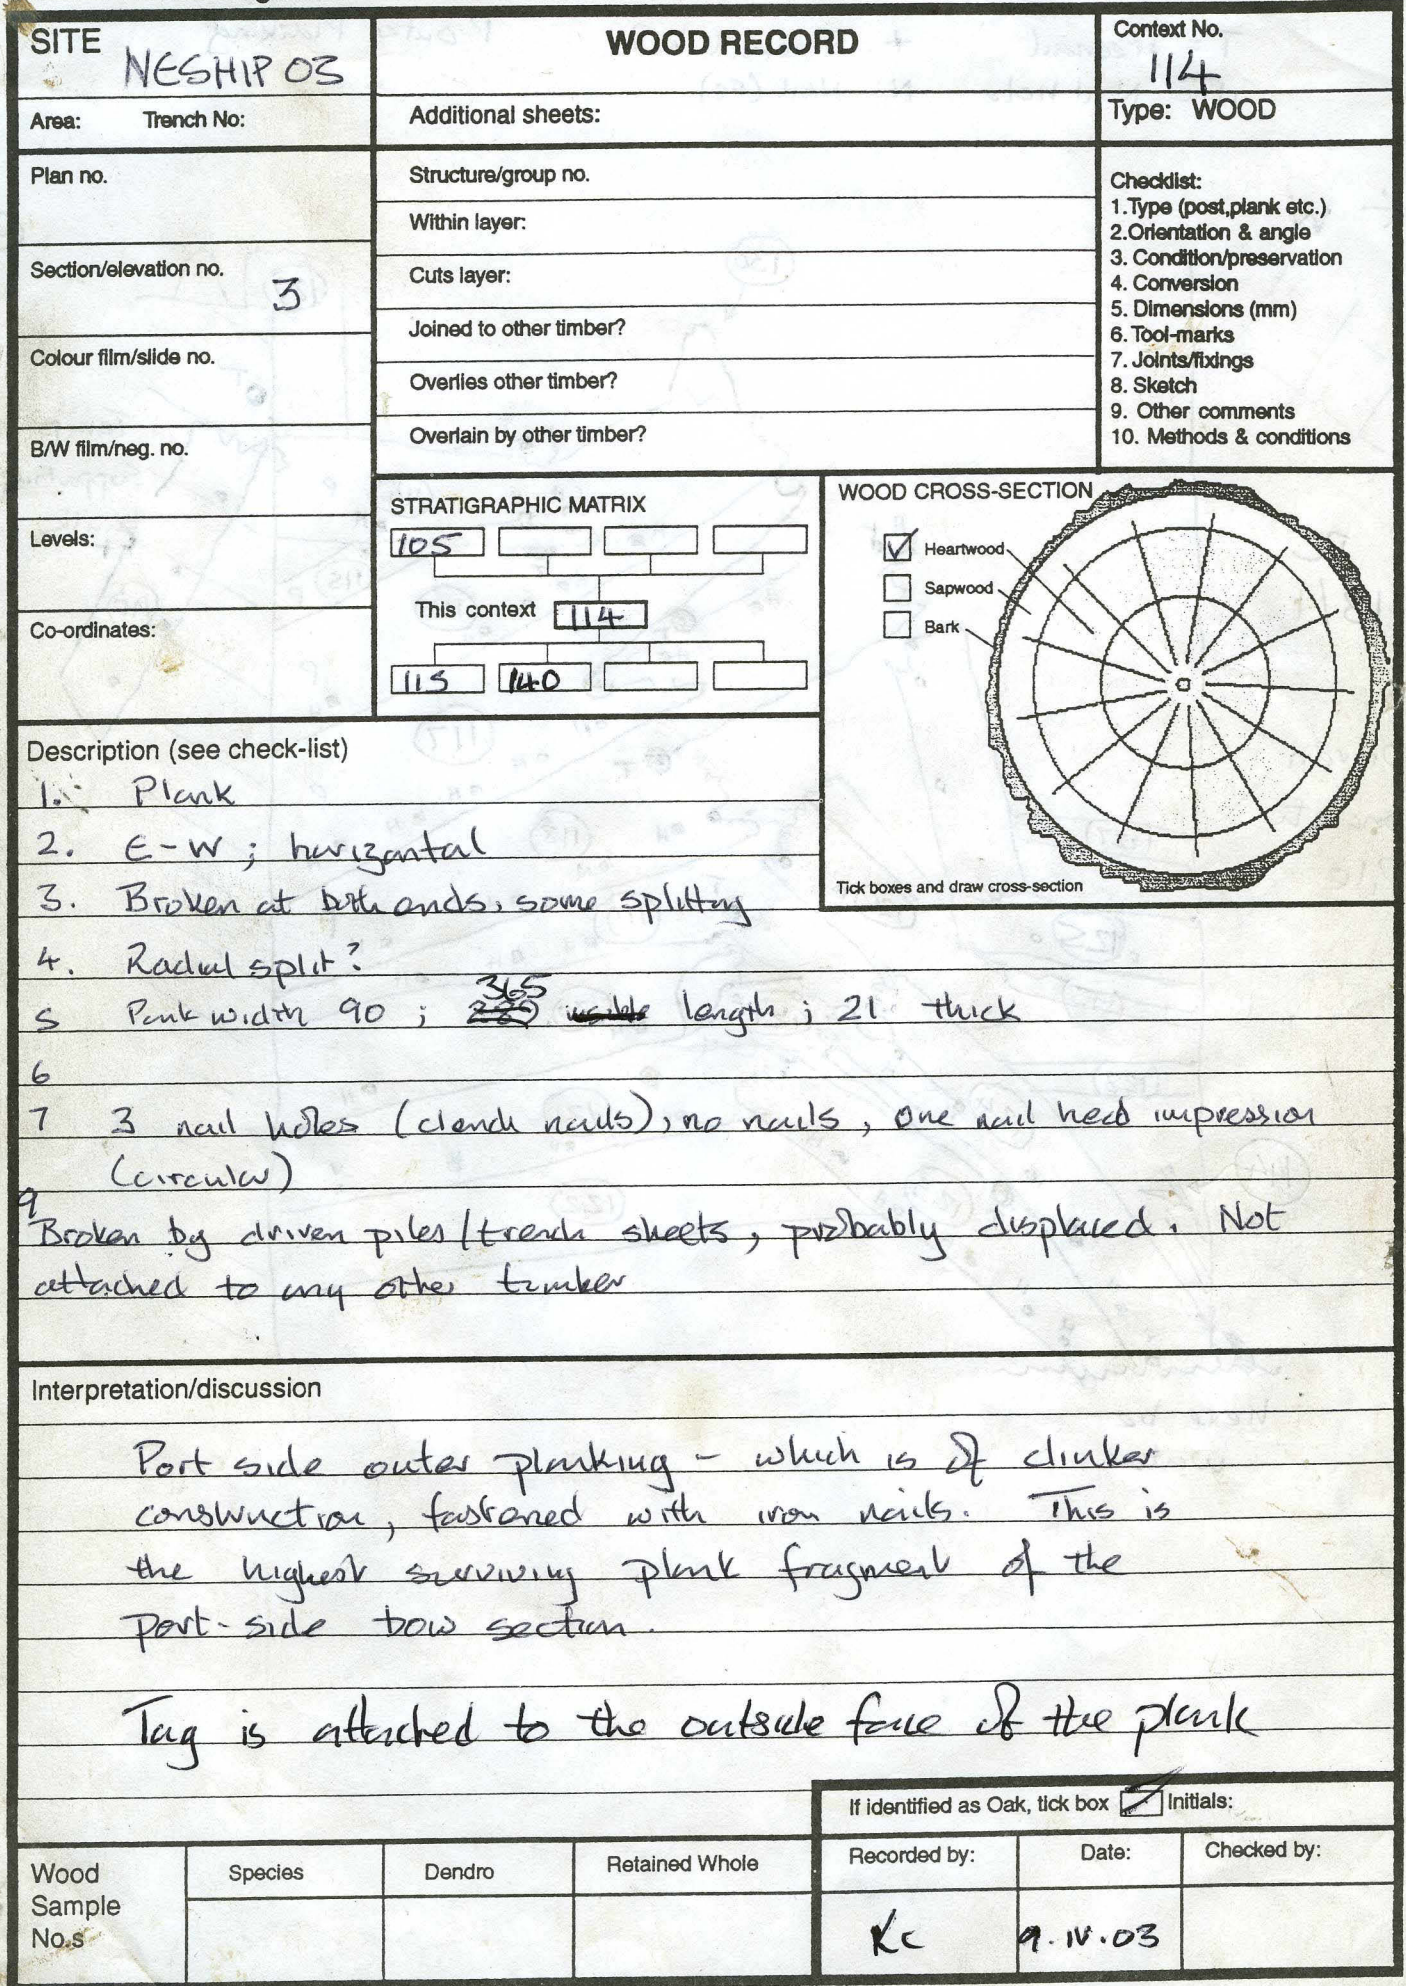 SITE NESHIP 03
WOOD RECORD
Context No.
114
Area: Trench No:
Additional sheets:
Type: WOOD
Plan no.
Section/elevation no.
3
Colour film/slide no.
B/W film/neg. no.
Levels:
Co-ordinates:
Structure/group no.
Within layer:
Cuts layer:
Joined to other timber?
Overlies other timber?
Overlain by other timber?
Checklist:
1.Type (post,plank etc.)
2.Orientation & angle
3. Condition/preservation
4. Conversion
5. Dimensions (mm)
6. Tool-marks
7. Joints/fixings
8. Sketch
9. Other comments
10. Methods & conditions
STRATIGRAPHIC MATRIX
105
This context 114
115 140
WOOD CROSS-SECTION
Heartwood
Sapwood
Bark
Tick boxes and draw cross-section
Description (see check-list)
1. Plank
2. E-W ; horizontal
3. Broken at both ends, some splitting
4. Radial split?
365
5 Pank width 90 ; length ; 21 thick
6
7 3 nail holes (clench nails), no nails, one nail head impression
(circular)
9
Broken by driven piles/trench sheets, probably displaced. Not
attached to any other timber
Interpretation/discussion
Port side outer planking - which is of clinker
construction, fastened with iron nails. This is
the highest surviving plank fragment of the
port-side bow section.
Tag is attached to the outside face of the plank
If identified as Oak, tick box Initials:
Wood
Sample
No.s
Species
Dendro
Retained Whole
Recorded by:
Date:
Checked by:
KC
9.IV.03